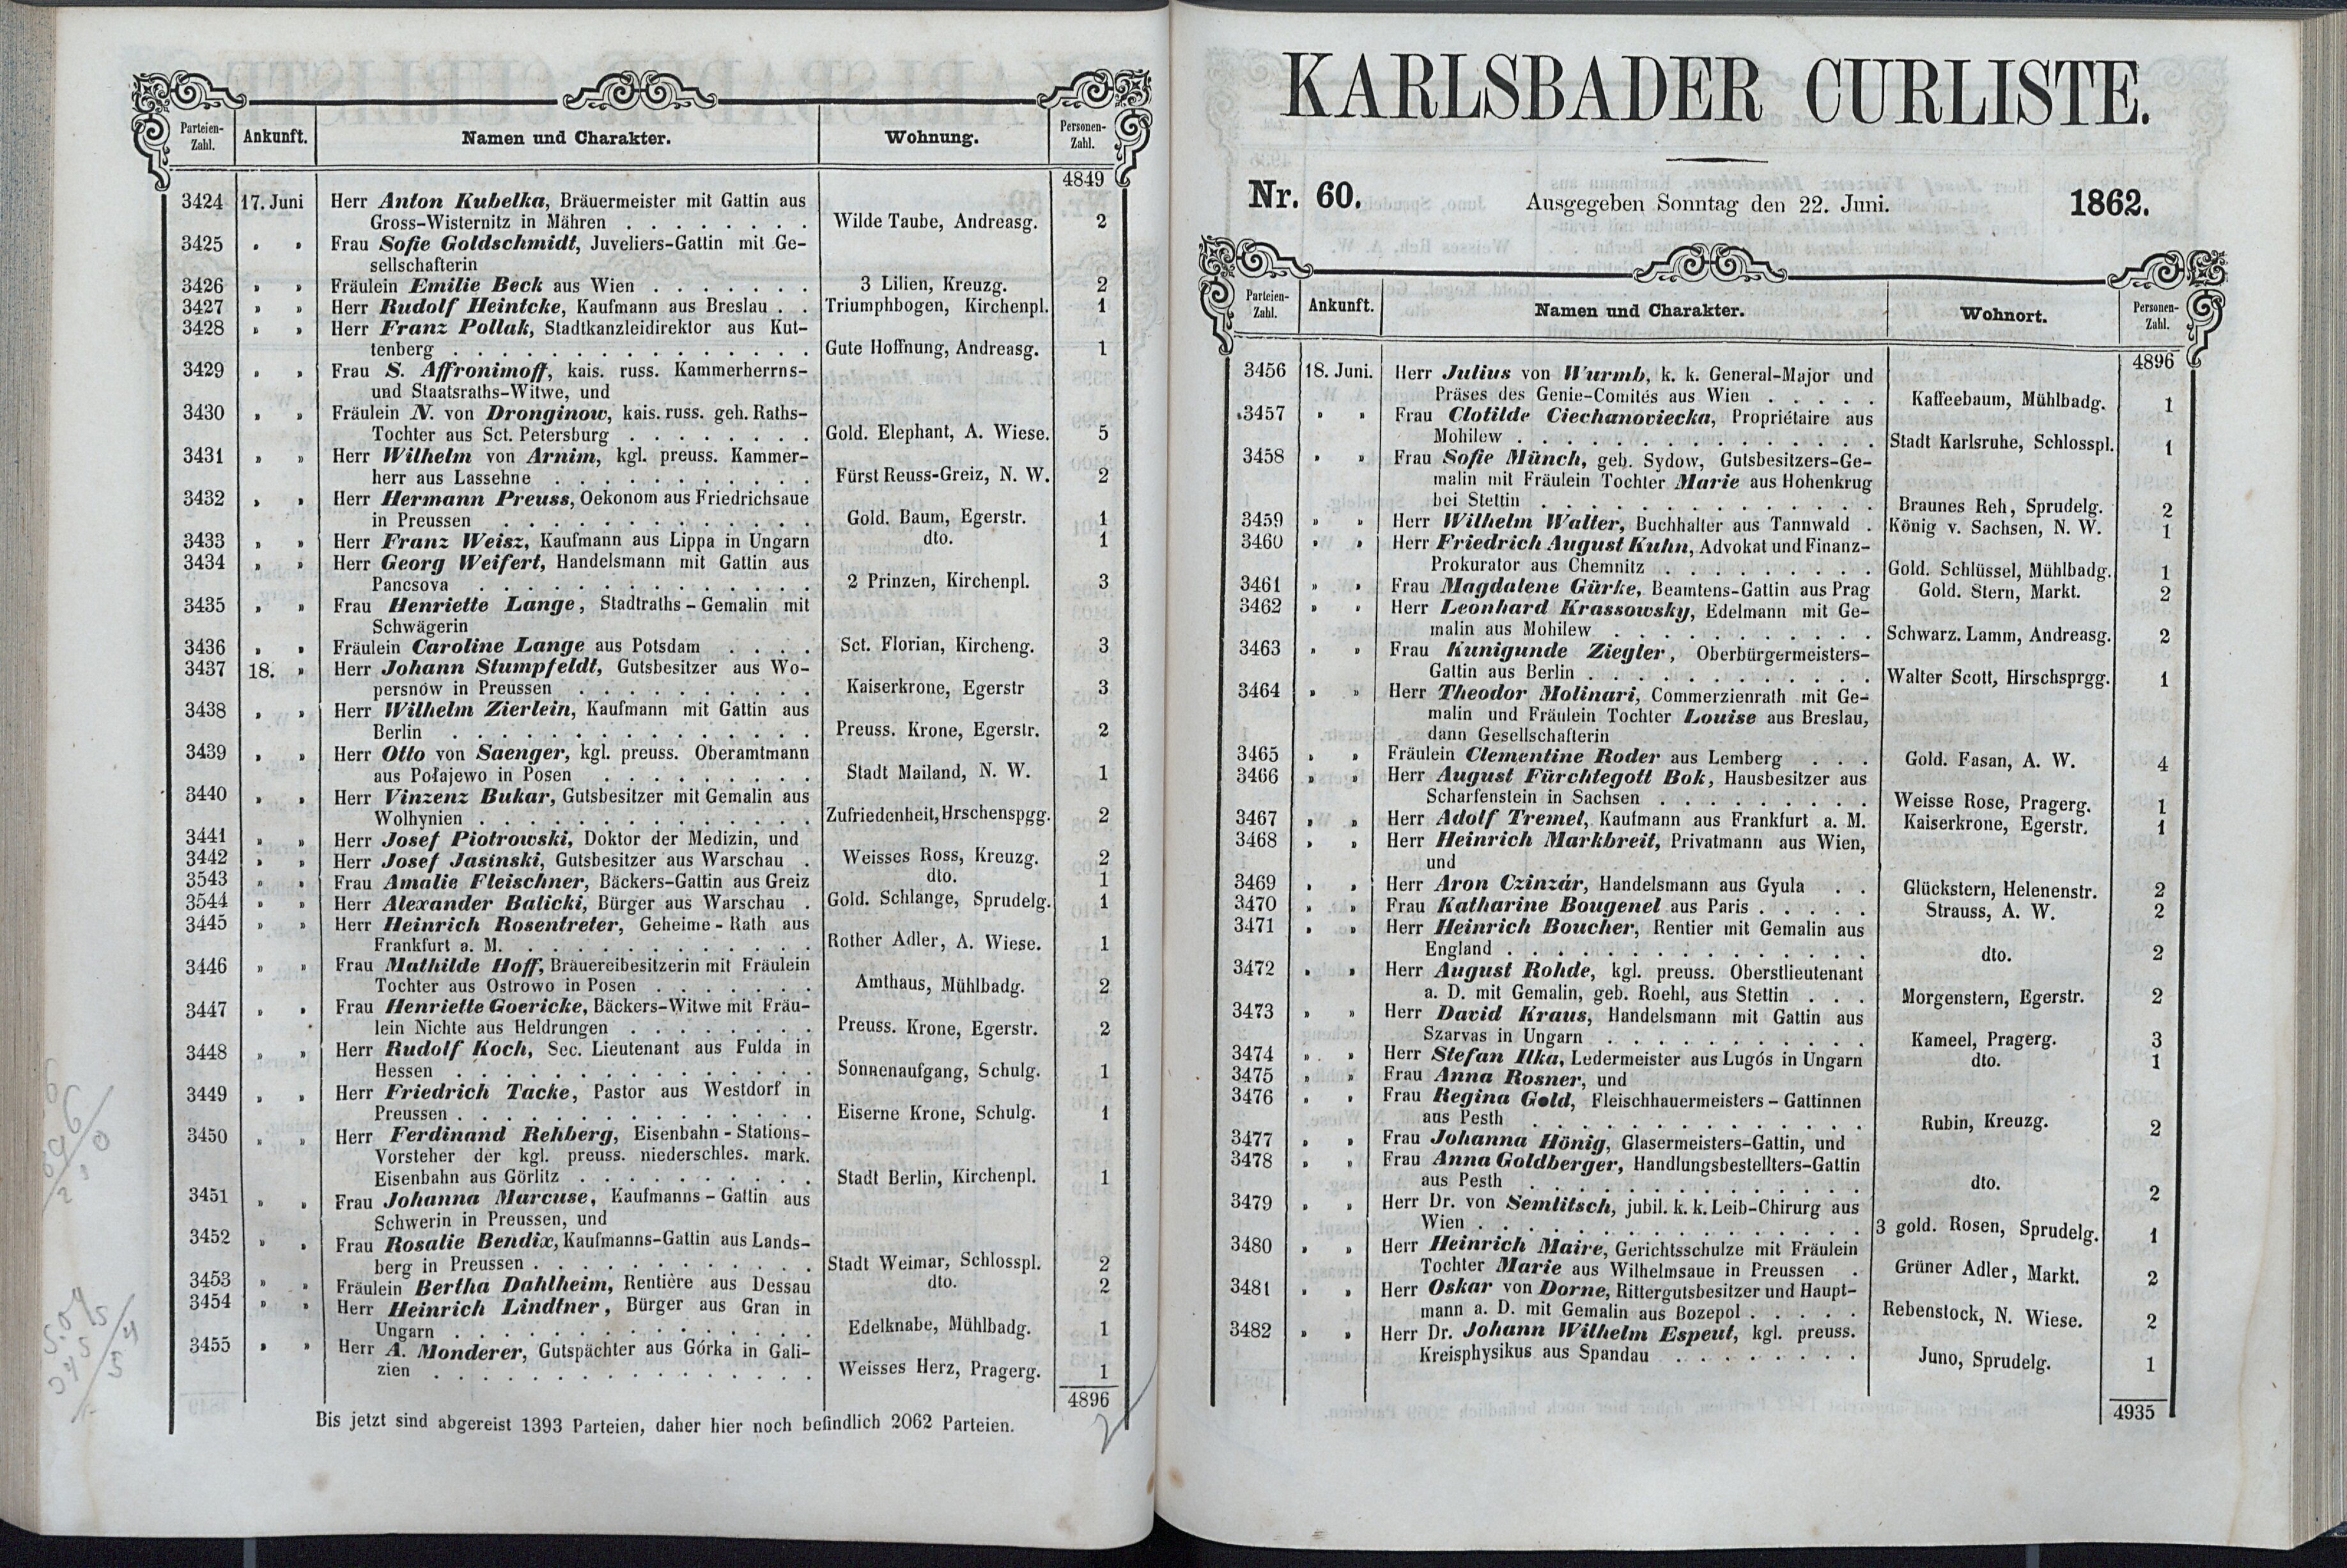 Parteien-Zahl. Ankunft. Namen und Charakter. Wohnung. Personen-Zahl.
4849
3424 17. Juni Herr Anton Kubelka, Bräuermeister mit Gattin aus
Gross-Wisternitz in Mähren . . . . . . . . Wilde Taube, Andreasg. 2
3425 „ „ Frau Sofie Goldschmidt, Juveliers-Gattin mit Ge-
sellschafterin
3426 „ „ Fräulein Emilie Beck aus Wien . . . . . . . 3 Lilien, Kreuzg. 2
3427 „ „ Herr Rudolf Heintcke, Kaufmann aus Breslau . . Triumphbogen, Kirchenpl. 1
3428 „ „ Herr Franz Pollak, Stadtkanzleidirektor aus Kut-
tenberg . . . . . . . . . . . . . . . Gute Hoffnung, Andreasg. 1
3429 „ „ Frau S. Affronimoff, kais. russ. Kammerherrns-
und Staatsraths-Witwe, und
3430 „ „ Fräulein N. von Dronginow, kais. russ. geh. Raths-
Tochter aus Sct. Petersburg . . . . . . . . Gold. Elephant, A. Wiese. 5
3431 „ „ Herr Wilhelm von Arnim, kgl. preuss. Kammer-
herr aus Lassehne . . . . . . . . . . . Fürst Reuss-Greiz, N. W. 2
3432 „ „ Herr Hermann Preuss, Oekonom aus Friedrichsaue
in Preussen . . . . . . . . . . . . . Gold. Baum, Egerstr. 1
3433 „ „ Herr Franz Weisz, Kaufmann aus Lippa in Ungarn dto. 1
3434 „ „ Herr Georg Weifert, Handelsmann mit Gattin aus
Pancsova . . . . . . . . . . . . . . 2 Prinzen, Kirchenpl. 3
3435 „ „ Frau Henriette Lange, Stadtraths-Gemalin mit
Schwägerin
3436 „ „ Fräulein Caroline Lange aus Potsdam . . . . Sct. Florian, Kircheng. 3
3437 18. „ Herr Johann Stumpfeldt, Gutsbesitzer aus Wo-
persnow in Preussen . . . . . . . . . . Kaiserkrone, Egerstr 3
3438 „ „ Herr Wilhelm Zierlein, Kaufmann mit Gattin aus
Berlin . . . . . . . . . . . . . . . Preuss. Krone, Egerstr. 2
3439 „ „ Herr Otto von Saenger, kgl. preuss. Oberamtmann
aus Połajewo in Posen . . . . . . . . . Stadt Mailand, N. W. 1
3440 „ „ Herr Vinzenz Bukar, Gutsbesitzer mit Gemalin aus
Wolhynien . . . . . . . . . . . . . . Zufriedenheit, Hrschenspgg. 2
3441 „ „ Herr Josef Piotrowski, Doktor der Medizin, und
3442 „ „ Herr Josef Jasinski, Gutsbesitzer aus Warschau . Weisses Ross, Kreuzg. 2
3543 „ „ Frau Amalie Fleischner, Bäckers-Gattin aus Greiz dto. 1
3544 „ „ Herr Alexander Balicki, Bürger aus Warschau . Gold. Schlange, Sprudelg. 1
3445 „ „ Herr Heinrich Rosentreter, Geheime-Rath aus
Frankfurt a. M. . . . . . . . . . . . . Rother Adler, A. Wiese. 1
3446 „ „ Frau Mathilde Hoff, Bräuereibesitzerin mit Fräulein
Tochter aus Ostrowo in Posen . . . . . . . Amthaus, Mühlbadg. 2
3447 „ „ Frau Henriette Goericke, Bäckers-Witwe mit Fräu-
lein Nichte aus Heldrungen . . . . . . . . Preuss. Krone, Egerstr. 2
3448 „ „ Herr Rudolf Koch, Sec. Lieutenant aus Fulda in
Hessen . . . . . . . . . . . . . . . Sonnenaufgang, Schulg. 1
3449 „ „ Herr Friedrich Tacke, Pastor aus Westdorf in
Preussen . . . . . . . . . . . . . . . Eiserne Krone, Schulg. 1
3450 „ „ Herr Ferdinand Rehberg, Eisenbahn-Stations-
Vorsteher der kgl. preuss. niederschles. mark.
Eisenbahn aus Görlitz . . . . . . . . . . Stadt Berlin, Kirchenpl. 1
3451 „ „ Frau Johanna Marcuse, Kaufmanns-Gattin aus
Schwerin in Preussen, und
3452 „ „ Frau Rosalie Bendix, Kaufmanns-Gattin aus Lands-
berg in Preussen . . . . . . . . . . . . Stadt Weimar, Schlosspl. 2
3453 „ „ Fräulein Bertha Dahlheim, Rentière aus Dessau dto. 2
3454 „ „ Herr Heinrich Lindtner, Bürger aus Gran in
Ungarn . . . . . . . . . . . . . . . Edelknabe, Mühlbadg. 1
3455 „ „ Herr A. Monderer, Gutspächter aus Górka in Gali-
zien . . . . . . . . . . . . . . . . Weisses Herz, Pragerg. 1
4896
Bis jetzt sind abgereist 1393 Parteien, daher hier noch befindlich 2062 Parteien.
KARLSBADER CURLISTE.
Nr. 60. Ausgegeben Sonntag den 22. Juni. 1862.
Parteien-Zahl. Ankunft. Namen und Charakter. Wohnort. Personen-Zahl.
4896
3456 18. Juni. Herr Julius von Wurmb, k. k. General-Major und
Präses des Genie-Comités aus Wien . . . . . Kaffeebaum, Mühlbadg. 1
3457 „ „ Frau Clotilde Ciechanoviecka, Propriétaire aus
Mohilew . . . . . . . . . . . . . . . Stadt Karlsruhe, Schlosspl. 1
3458 „ „ Frau Sofie Münch, geb. Sydow, Gutsbesitzers-Ge-
malin mit Fräulein Tochter Marie aus Hohenkrug
bei Stettin . . . . . . . . . . . . . . Braunes Reh, Sprudelg. 2
3459 „ „ Herr Wilhelm Walter, Buchhalter aus Tannwald . König v. Sachsen, N. W. 1
3460 „ „ Herr Friedrich August Kuhn, Advokat und Finanz-
Prokurator aus Chemnitz . . . . . . . . . Gold. Schlüssel, Mühlbadg. 1
3461 „ „ Frau Magdalene Gürke, Beamtens-Gattin aus Prag Gold. Stern, Markt. 2
3462 „ „ Herr Leonhard Krassowsky, Edelmann mit Ge-
malin aus Mohilew . . . . . . . . . . . Schwarz. Lamm, Andreasg. 2
3463 „ „ Frau Kunigunde Ziegler, Oberbürgermeisters-
Gattin aus Berlin . . . . . . . . . . . . Walter Scott, Hirschsprgg. 1
3464 „ „ Herr Theodor Molinari, Commerzienrath mit Ge-
malin und Fräulein Tochter Louise aus Breslau,
dann Gesellschafterin
3465 „ „ Fräulein Clementine Roder aus Lemberg . . . Gold. Fasan, A. W. 4
3466 „ „ Herr August Fürchtegott Bok, Hausbesitzer aus
Scharfenstein in Sachsen . . . . . . . . . Weisse Rose, Pragerg. 1
3467 „ „ Herr Adolf Tremel, Kaufmann aus Frankfurt a. M. Kaiserkrone, Egerstr. 1
3468 „ „ Herr Heinrich Markbreit, Privatmann aus Wien,
und
3469 „ „ Herr Aron Czinzár, Handelsmann aus Gyula . . Glückstern, Helenenstr. 2
3470 „ „ Frau Katharine Bougenel aus Paris . . . . . Strauss, A. W. 2
3471 „ „ Herr Heinrich Boucher, Rentier mit Gemalin aus
England . . . . . . . . . . . . . . . dto. 2
3472 „ „ Herr August Rohde, kgl. preuss. Oberstlieutenant
a. D. mit Gemalin, geb. Roehl, aus Stettin . . . Morgenstern, Egerstr. 2
3473 „ „ Herr David Kraus, Handelsmann mit Gattin aus
Szarvas in Ungarn . . . . . . . . . . . Kameel, Pragerg. 3
3474 „ „ Herr Stefan Ilka, Ledermeister aus Lugós in Ungarn dto. 1
3475 „ „ Frau Anna Rosner, und
3476 „ „ Frau Regina Gold, Fleischhauermeisters-Gattinnen
aus Pesth . . . . . . . . . . . . . . Rubin, Kreuzg. 2
3477 „ „ Frau Johanna Hönig, Glasermeisters-Gattin, und
3478 „ „ Frau Anna Goldberger, Handlungsbestellters-Gattin
aus Pesth . . . . . . . . . . . . . . dto. 2
3479 „ „ Herr Dr. von Semlitsch, jubil. k. k. Leib-Chirurg aus
Wien . . . . . . . . . . . . . . . . 3 gold. Rosen, Sprudelg. 1
3480 „ „ Herr Heinrich Maire, Gerichtsschulze mit Fräulein
Tochter Marie aus Wilhelmsaue in Preussen . Grüner Adler, Markt. 2
3481 „ „ Herr Oskar von Dorne, Rittergutsbesitzer und Haupt-
mann a. D. mit Gemalin aus Bozepol . . . . . Rebenstock, N. Wiese. 2
3482 „ „ Herr Dr. Johann Wilhelm Espeut, kgl. preuss.
Kreisphysikus aus Spandau . . . . . . . . Juno, Sprudelg. 1
4935